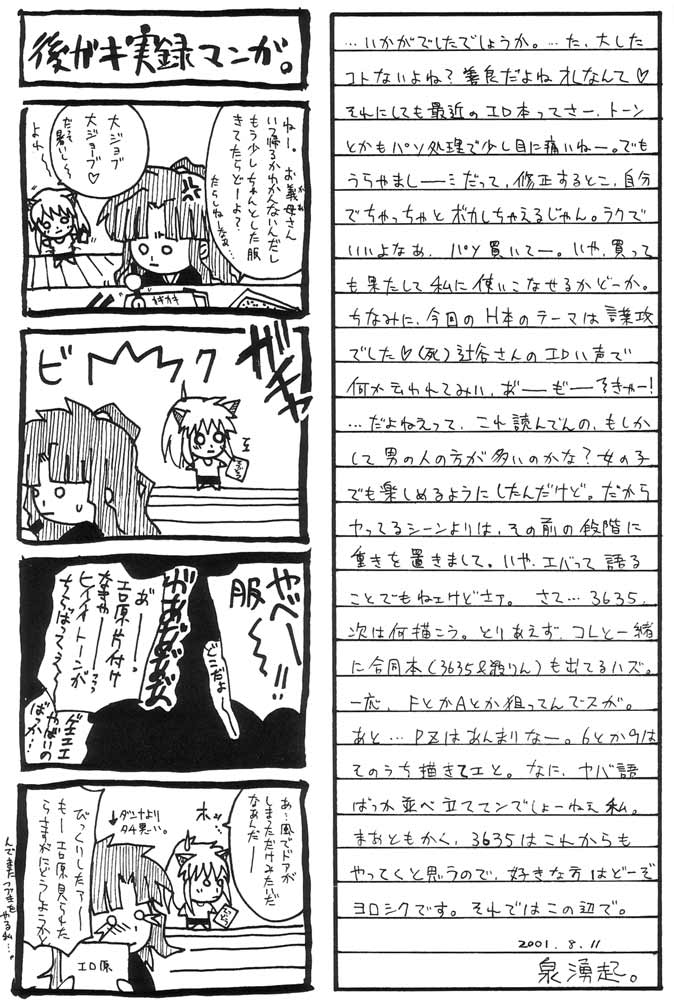 後ガキ実録マンガ。
ねー。お義母さん
いつ帰るかわかんないんだし
もう少しちゃんとした服
きてたらどーよ?
たらしねしなぁ…
大ジョブ
大ジョーブ♡
だって暑いしぃ
よれ〜
ガチャ
ビクク
やべーー!!
服
どこだよ
がああああ
あ゛ーーっ
エロ原片付け
なきゃーーっっ
ヒィィイトーンが
ちらばってるぇ〜
ゲェエエ
やばいの
ばっか…?
あ、風でドアが
しまっただけみたいだ
なぁんだー
ホッ
↓ダンナより
タチ悪ーい。
びっくりしたァー
もー エロ原見られた
らさすがにどうしようかと
エロ原
んでまたファ生を
やる私…。
…いかがでしたでしょうか。…た、大した
コトないよね?善良だよねオレなんて♡
それにしても最近のエロ本ってさー、トーン
とかもパソ処理で少し目に痛いねー。でも
うらやましーーミだって、修正するとこ、自分
でちゃっちゃとボカしちゃえるじゃん。ラクで
いいよなぁ、パソ買いてー。いや、買って
も果たして私に使いこなせるかどーか。
ちなみに、今回のH本のテーマは言葉攻
でした♡(死)辻谷さんのエロい声で
何か云われてみい、おーーもーーろきゃー!
…だよねえって、これ読んでんの、もしか
して男の人の方が多いのかな?女の子
でも楽しめるようにしたんだけど。だから
ヤってるシーンよりは、その前の段階に
重きを置きまして。いや、エバって語る
ことでもねェけどさァ。さて…3635、
次は何描こう。とりあえず、コレと一緒
に合同本(3635&殺りん)も出てるハズ。
一応、FとかAとか狙ってんでスが。
あと…PZはあんまりなー。6とか9は
そのうち描きてエと。なに、ヤバ語
ばっか並べ立ててンでしょーねぇ私。
まあともかく、3635はこれからも
やってくと思うので、好きな方はどーぞ
ヨロシクです。それではこの辺で。
2001.8.11
泉湧起。